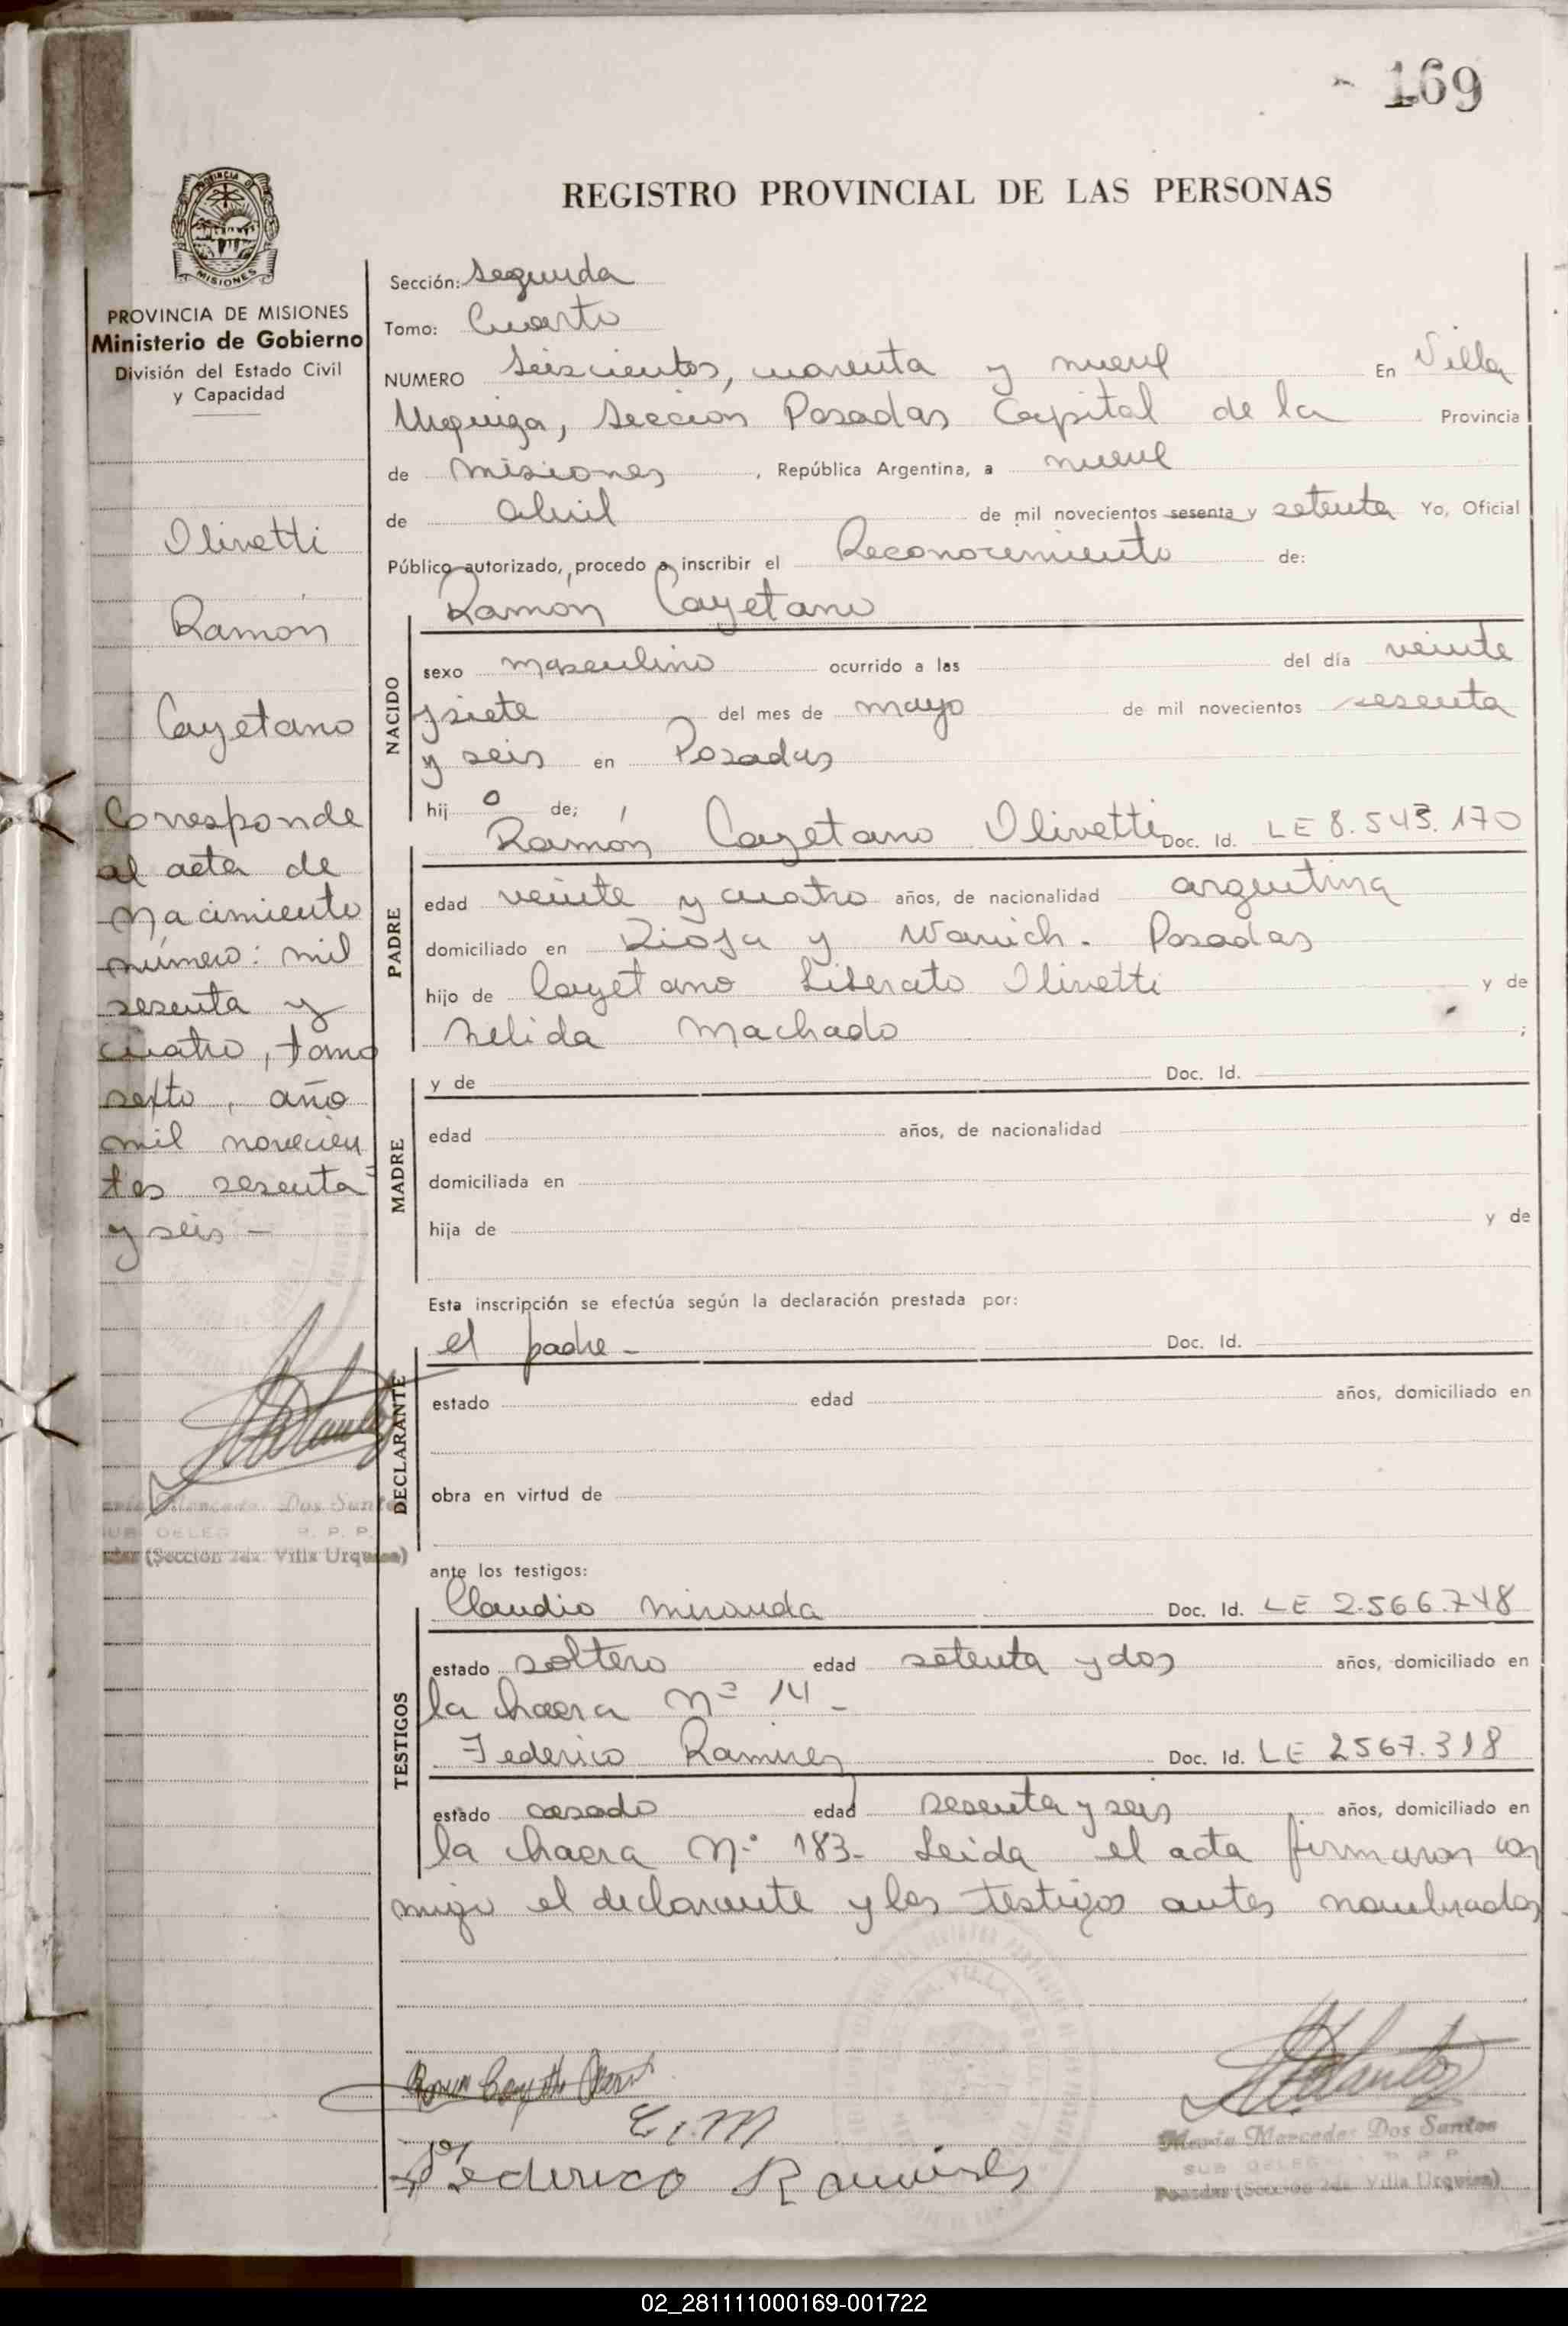 169
REGISTRO PROVINCIAL DE LAS PERSONAS
PROVINCIA DE MISIONES
Ministerio de Gobierno
División del Estado Civil
y Capacidad
Olivetti
Ramón
Cayetano
Corresponde
al acta de
nacimiento
número: mil
sesenta y
cuatro, tomo
sexto, año
mil novecien
tos sesenta
y seis -
Dos Santos
(Sección 2da. Villa Urquiza)
Sección: Segunda
Tomo: Cuarto
NUMERO Seiscientos, cuarenta y nueve En Villa
Urquiza, Sección Posadas Capital de la Provincia
de Misiones, República Argentina, a nueve
de abril de mil novecientos sesenta y setenta Yo, Oficial
Público autorizado, procedo a inscribir el Reconocimiento de:
Ramón Cayetano
NACIDO
sexo masculino ocurrido a las del día veinte
y siete del mes de mayo de mil novecientos sesenta
y seis en Posadas
hijo de;
Ramón Cayetano Olivetti Doc. Id. LE 8.543.170
PADRE
edad veinte y cuatro años, de nacionalidad argentina
domiciliado en Rioja y Posadas
hijo de Cayetano Liberato Olivetti y de
Nelida Machado ;
MADRE
y de Doc. Id.
edad años, de nacionalidad
domiciliada en
hija de y de
Esta inscripción se efectúa según la declaración prestada por:
el padre - Doc. Id.
DECLARANTE
estado edad años, domiciliado en
obra en virtud de
ante los testigos:
Claudio Miranda Doc. Id. LE 2.566.748
TESTIGOS
estado soltero edad setenta y dos años, domiciliado en
la chacra Nº 14 -
Federico Ramirez Doc. Id. LE 2567.318
estado casado edad sesenta y seis años, domiciliado en
la chacra Nº 183. Leida el acta firmaron con
migo el declarante y los testigos antes nombrados
C. M
Federico Ramires
Maria Mercedes Dos Santos
SUB DELEG
Posadas (Sección 2da. Villa Urquiza)
02_281111000169-001722